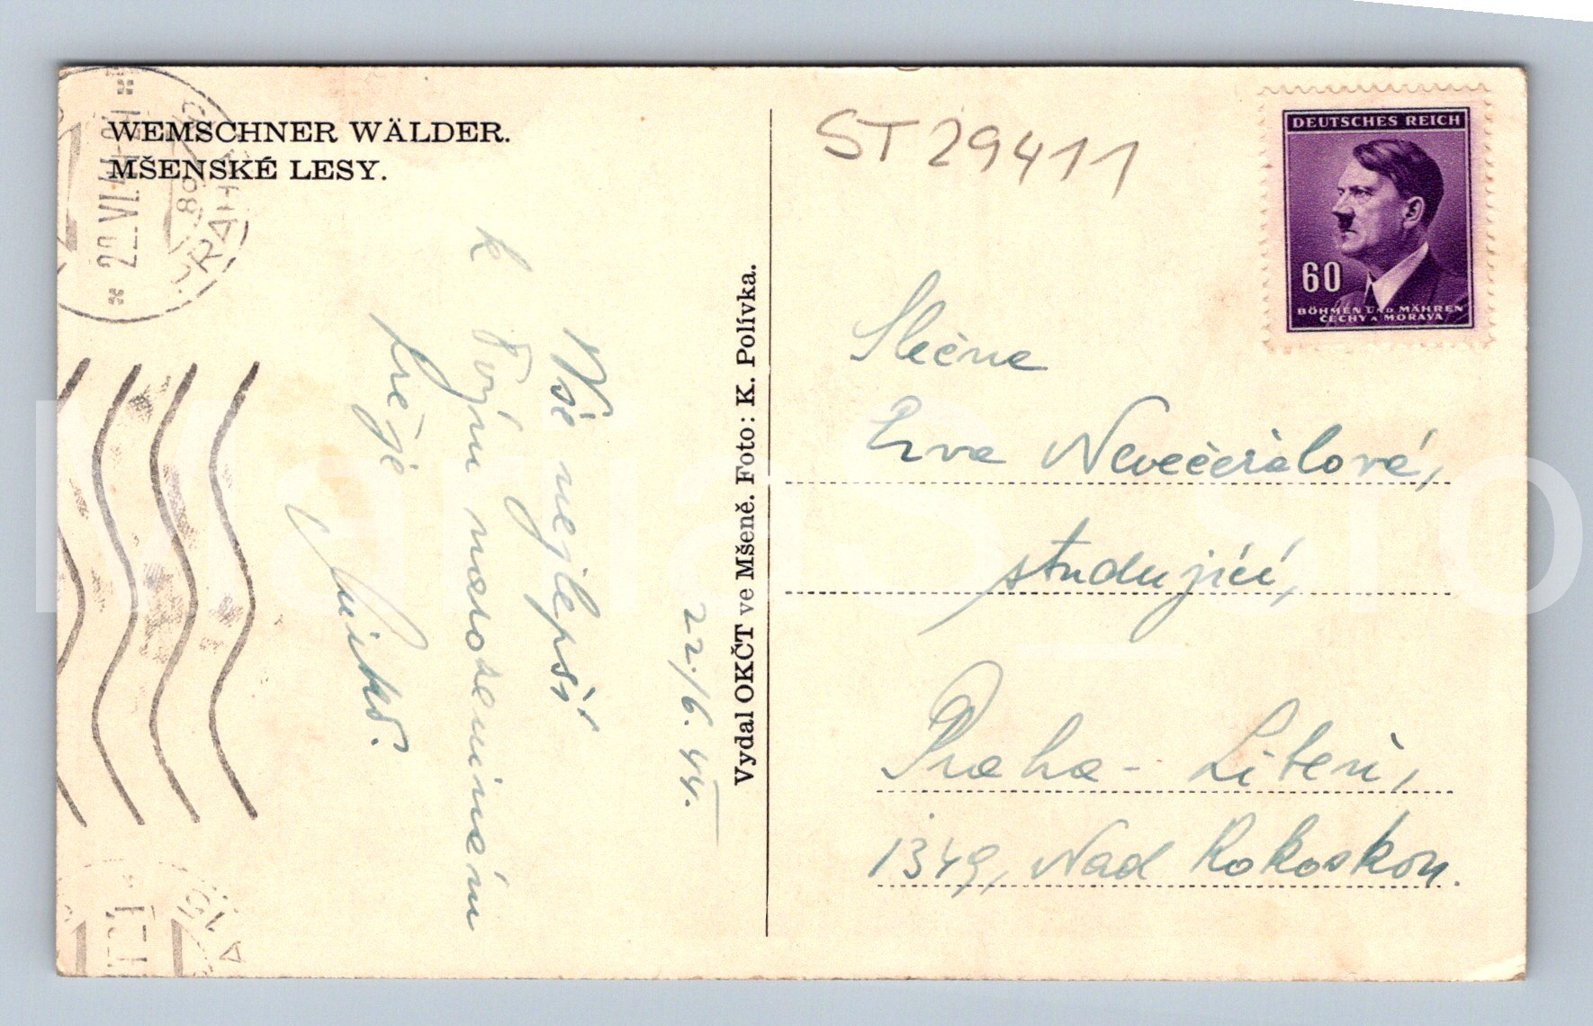 WEMSCHNER WÄLDER.
MŠENSKÉ LESY.
22.VI.44
PRAHA
22./6. 44.
Vše nejlepší
k Tvým narozeninám
přeje
Vydal OKČT ve Mšeně. Foto: K. Polívka.
ST 29411
DEUTSCHES REICH
60
BÖHMEN UND MÄHREN
ČECHY A MORAVA
Slečna
Eva Nevečeřalová,
studující,
Praha - Libeň,
1349, Nad Rokoskou.